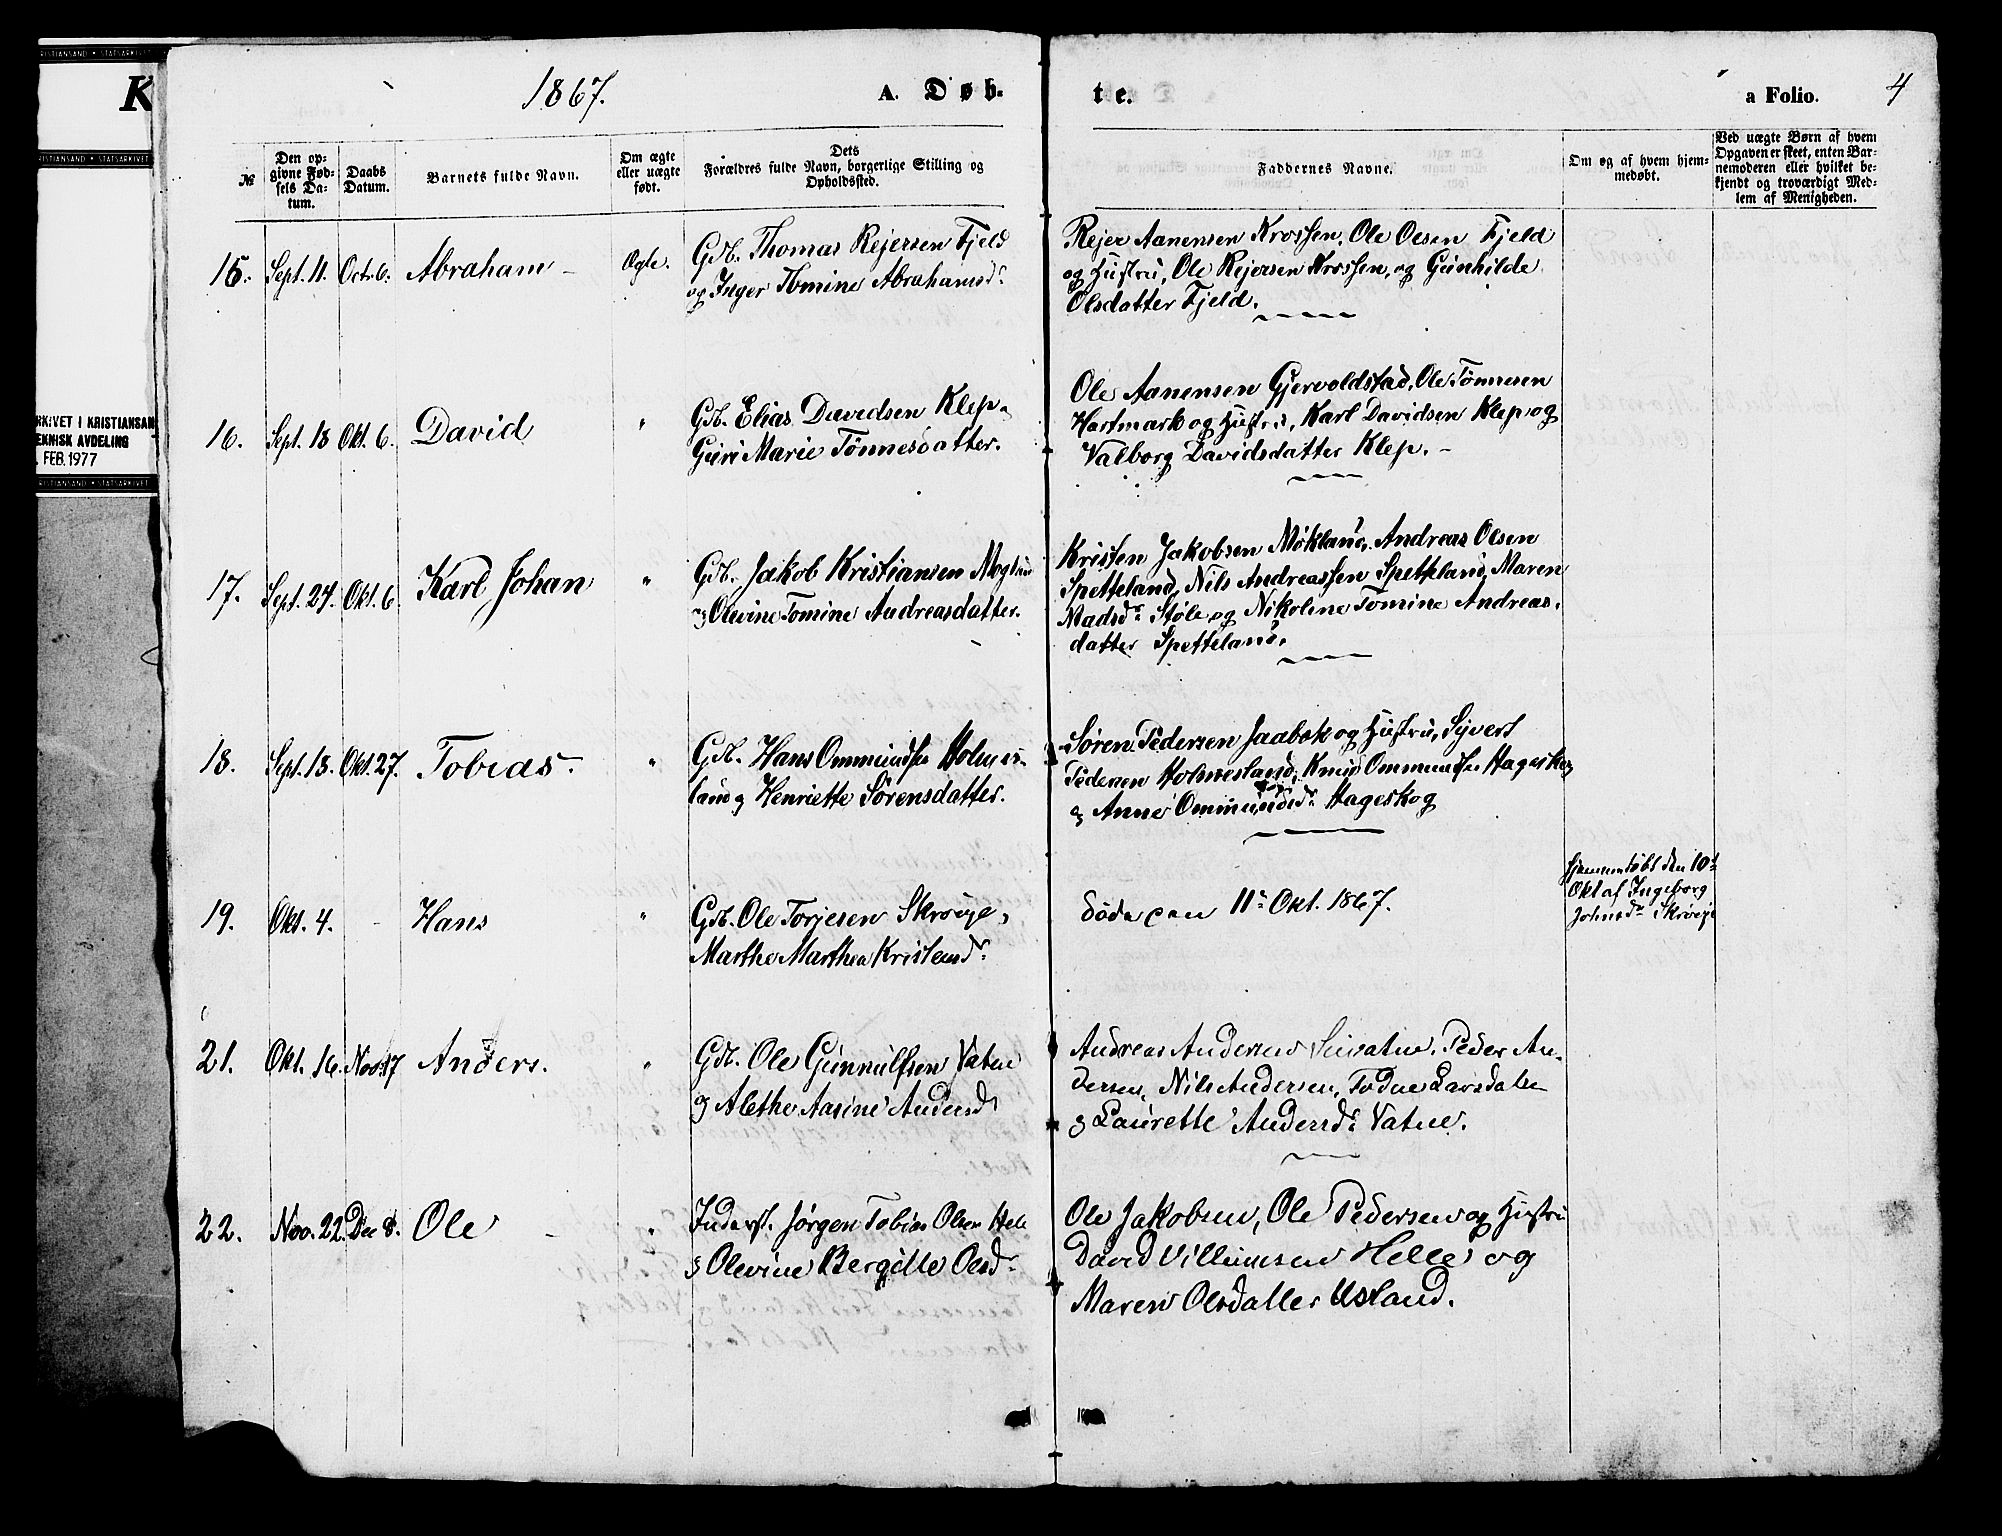 RISTIANSAND • STATSARKIVET
K
RISTIANSAND • STATSARKIVET
RKIVET I KRISTIANSAN
EKNISK AVDELING
FEB. 1977
RISTIANSAND • STATSARKIVET
1867.
A. Døb-
te.
a Folio.
4
№
Den op-
givne Fød-
sels Da-
tum.
Daabs
Datum.
Barnets fulde Navn.
Om ægte
eller uægte
født.
Dets
Forældres fulde Navn, borgerlige Stilling og
Opholdssted.
Faddernes Navne.
Om og af hvem hjem-
medøbt.
Ved uægte Børn af hvem
Opgaven er skeet, enten Bar-
nemoderen eller hvilket be-
kjendt og troværdigt Med-
lem af Menigheden.
15. Sept. 11. Oct. 6. Abraham Ægte.
Gdb. Thomas Rejersen Fjeld
og Inger Tomine Abrahamsdr.
Rejer Aanensen Krossen, Ole Olsen Fjeld
og Hustru, Ole Rejersen Krossen, og Gunhilde
Olsdatter Fjeld.
16. Sept. 18 Okt. 6. David "
Gdb. Elias Davidsen Klep
Guri Marie Tönnesdatter.
Ole Aanensen Gjervoldstad, Ole Tönnesen
Hartmark og Hustru, Karl Davidsen Klep og
Valborg Davidsdatter Klep. -
17. Sept. 27. Okt. 6. Karl Johan "
Gdb. Jakob Kristiansen
og Olevine Tomine Andreasdatter.
Kristen Jakobsen Mökland, Andreas Olsen
Spetteland, Nils Andreassen Spetteland, Maren
Madsdr. Støle og Nikoline Tomine Andreas-
datter Spetteland.
18. Sept. 13. Okt. 27. Tobias. "
Gdb. Hans Ommundsen Holmes-
land og Henriette Sörensdatter.
Sören Pedersen Jaabæk og Hustru, Syvert
Pedersen Holmesland, Knud Ommundsen Hageskog
og Anne Ommundsdr. Hageskog
19. Okt. 4. - Hans "
Gdb. Ole Torjesen Skroije,
Marthe Marthea Kristensdr.
döde den 11te Okt. 1867.
hjemmedöbt den 10d
Okt af Ingeborg
Johnsdr. Skröije
21. Okt. 16. Nov. 17 Anders. "
Gdb. Ole Gunnulfsen Vatne
og Alethe Aasine Andersdr
Andreas Andersen Peder An-
dersen, Nils Andersen, Todne Larsdatter
og Laurette Andersdr. Vatne.
22. Nov. 22. Dec 8. Ole "
Inderst. Jörgen Tobias Olsen Helle
og Olevine Bergitte Olsdr.
Ole Jakobsen, Ole Pedersen og Hustru
David Villumsen Helle og
Maren Olsdatter Usland.